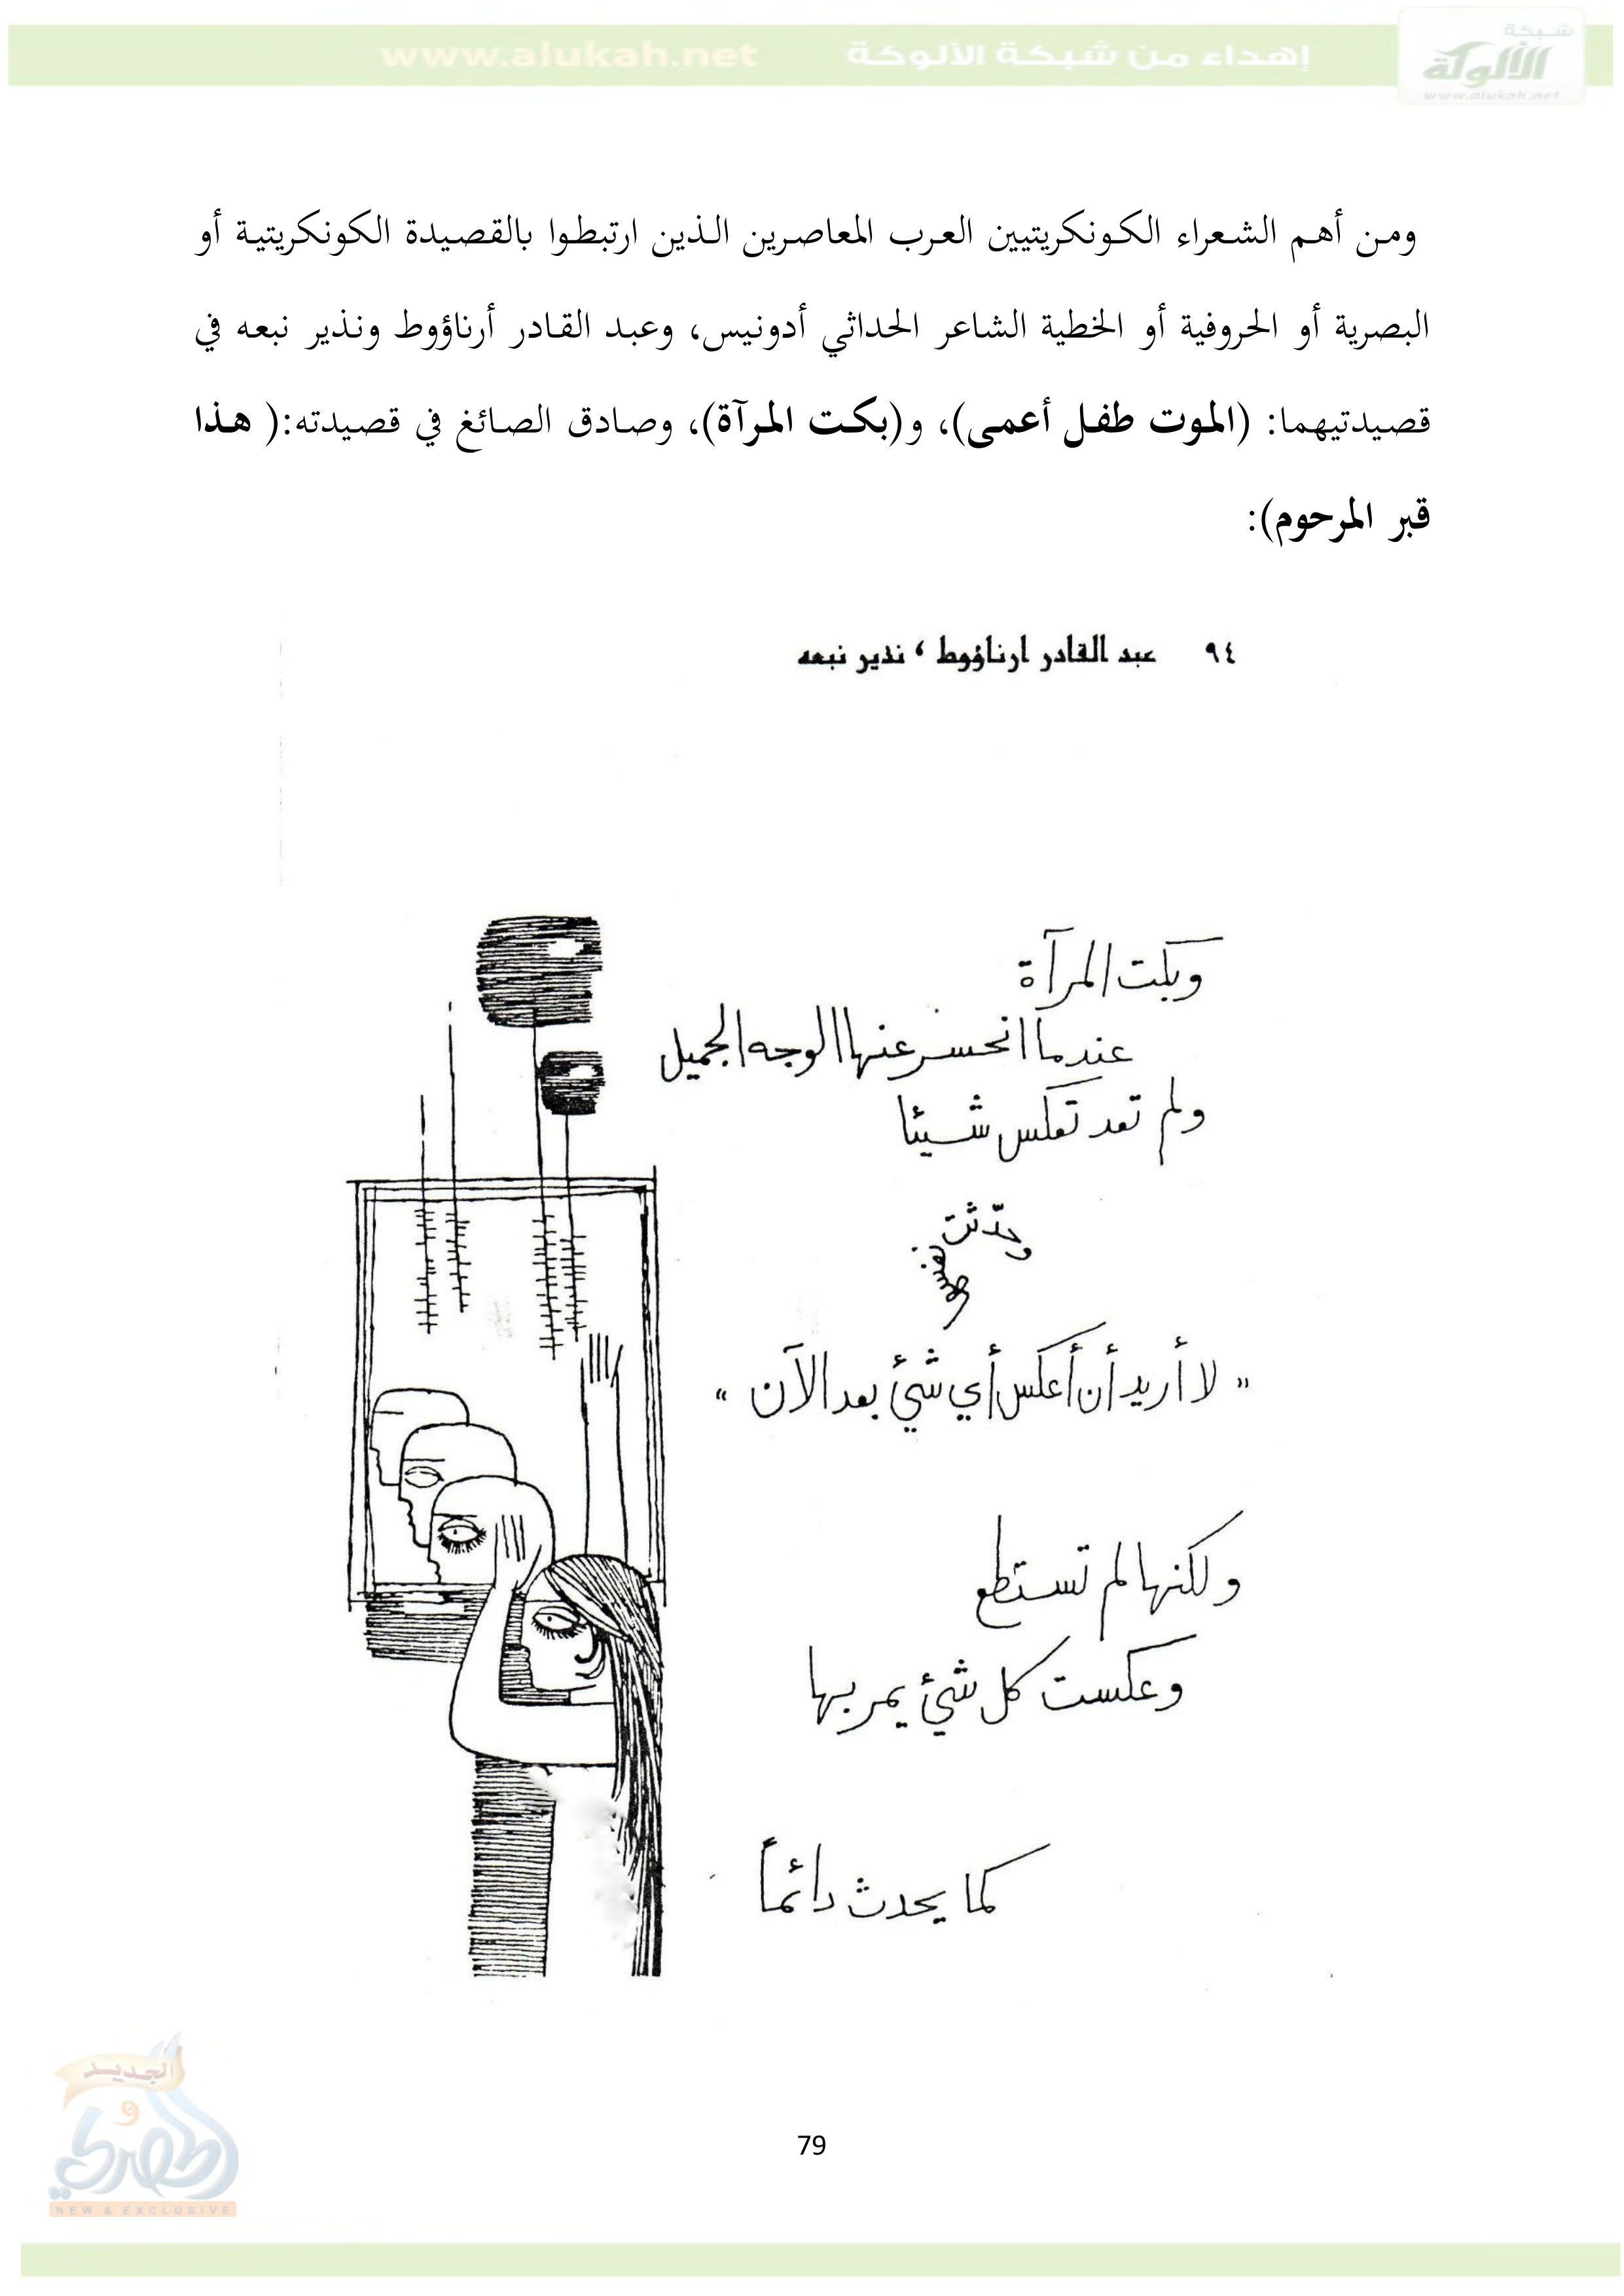 www.alukah.net إهداء من شبكة الألوكة
شبكة
الألوكة
www.alukah.net
ومن أهم الشعراء الكونكريتيين العرب المعاصرين الذين ارتبطوا بالقصيدة الكونكريتية أو
البصرية أو الحروفية أو الخطية الشاعر الحداثي أدونيس، وعبد القادر أرناؤوط ونذير نبعه في
قصيدتيهما: (الموت طفل أعمى)، و(بكت المرآة)، وصادق الصائغ في قصيدته:( هذا
قبر المرحوم):
٩٤ عبد القادر ارناؤوط ، نذير نبعه
وبكت المرآة
عندما انحسر عنها الوجه الجميل
ولم تعد تعكس شيئا
وحدّثت نفسها
" لا أريد أن أعكس أي شئ بعد الآن "
ولكنها لم تستطع
وعكست كل شئ يمر بها
كما يحدث دائماً
الجديد
و
الحصري
NEW & EXCLUSIVE
79